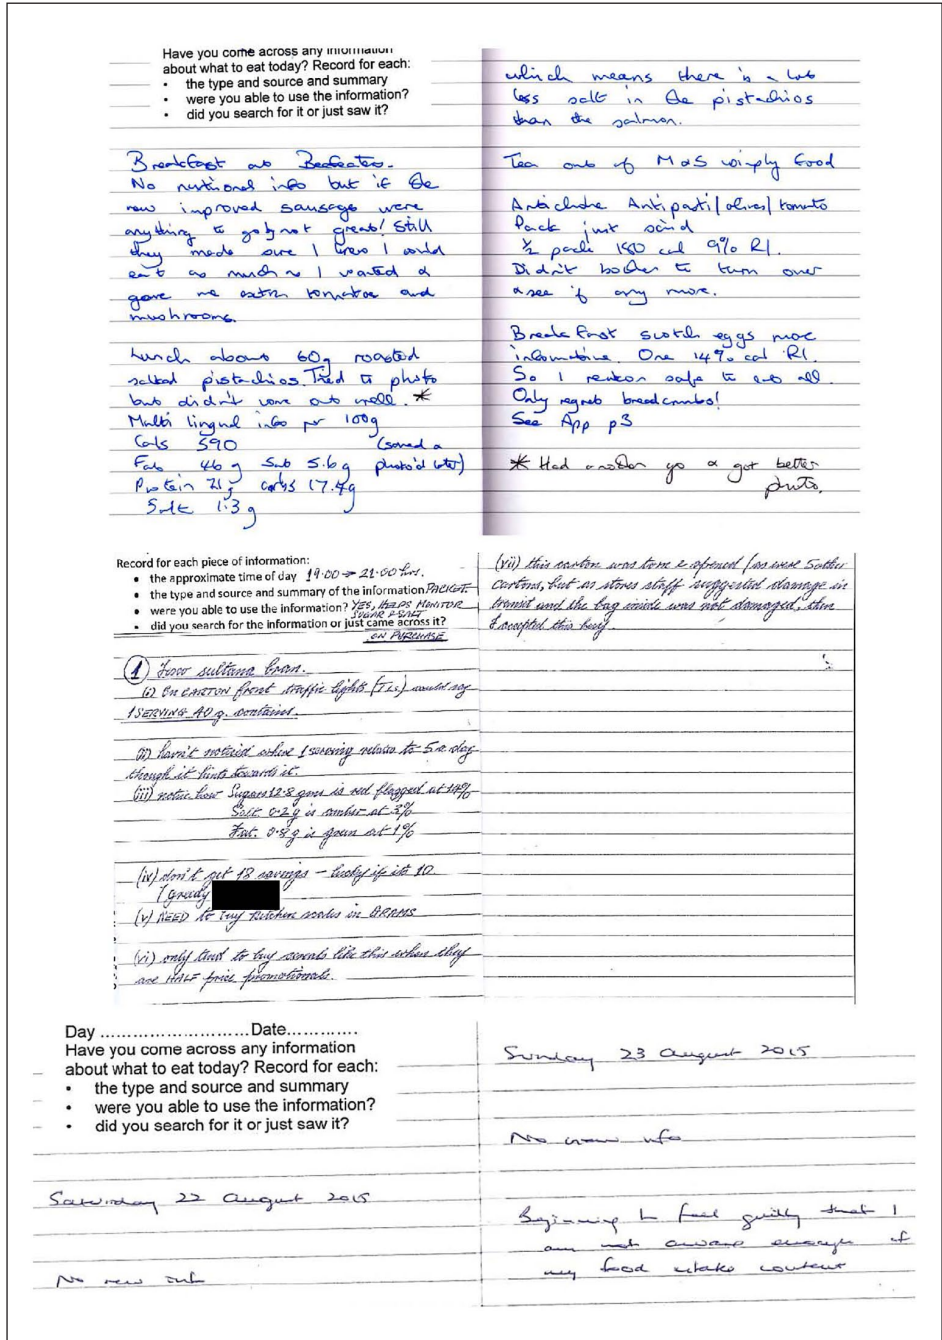 Have you come across any information
about what to eat today? Record for each:
• the type and source and summary
• were you able to use the information?
• did you search for it or just saw it?
Breakfast at Beefeaters.
No nutritional info but if the
new improved sausage were
anything to go by not great! Still
they made sure I knew I could
eat as much as I wanted &
gave me extra tomatoe and
mushrooms.
Lunch about 60g roasted
salted pistachios. Tried to photo
but didn't come out well. *
Multi lingual info per 100g
Cals 590 (saved &
Fat 46g Sat 5.6g photo'd later)
Protein 21g carbs 17.4g
Salt 1.3g
which means there is a lot
less salt in the pistachios
than the salmon.
Tea out of M&S simply food
Artichoke Antipasti/olives/tomato
Pack just said
½ pack 180 cal 9% RI.
Didn't bother to turn over
& see if any more.
Breakfast scotch eggs more
informative. One 14% cal RI.
So I reckon safe to eat all.
Only regret breadcrumbs!
See App p3
* Had another go & got better
photo.
Record for each piece of information:
• the approximate time of day 19.00 → 21.00 hrs.
• the type and source and summary of the information PACKET.
• were you able to use the information? YES, HELPS MONITOR
SUGAR & SALT
• did you search for the information or just came across it?
ON PURCHASE
① Tesco sultana bran.
(i) On CARTON front traffic lights (TLs) would say
1 SERVING 40 g. contains.
(ii) haven't noticed where 1 serving relates to 5 a day
though it hints towards it.
(iii) notice how Sugars 12.8 gms is red flagged at 14%
Salt. 0.2g is amber at 3%
Fat. 0.8g is green at 1%
(iv) don't get 18 servings – lucky if its 10
(greedy
(v) NEED to buy kitchen scales in GRAMS
(vi) only tend to buy cereals like this when they
are HALF price promotionals.
(vii) this carton was torn & opened (as were 5 other
cartons, but as stores staff suggested damage in
transit and the bag inside was not damaged, then
I accepted this buy.
Day ............................Date.............
Have you come across any information
about what to eat today? Record for each:
• the type and source and summary
• were you able to use the information?
• did you search for it or just saw it?
Saturday 22 August 2015
No new info
Sunday 23 August 2015
No new info
Beginning to feel guilty that I
am not aware enough of
my food intake content